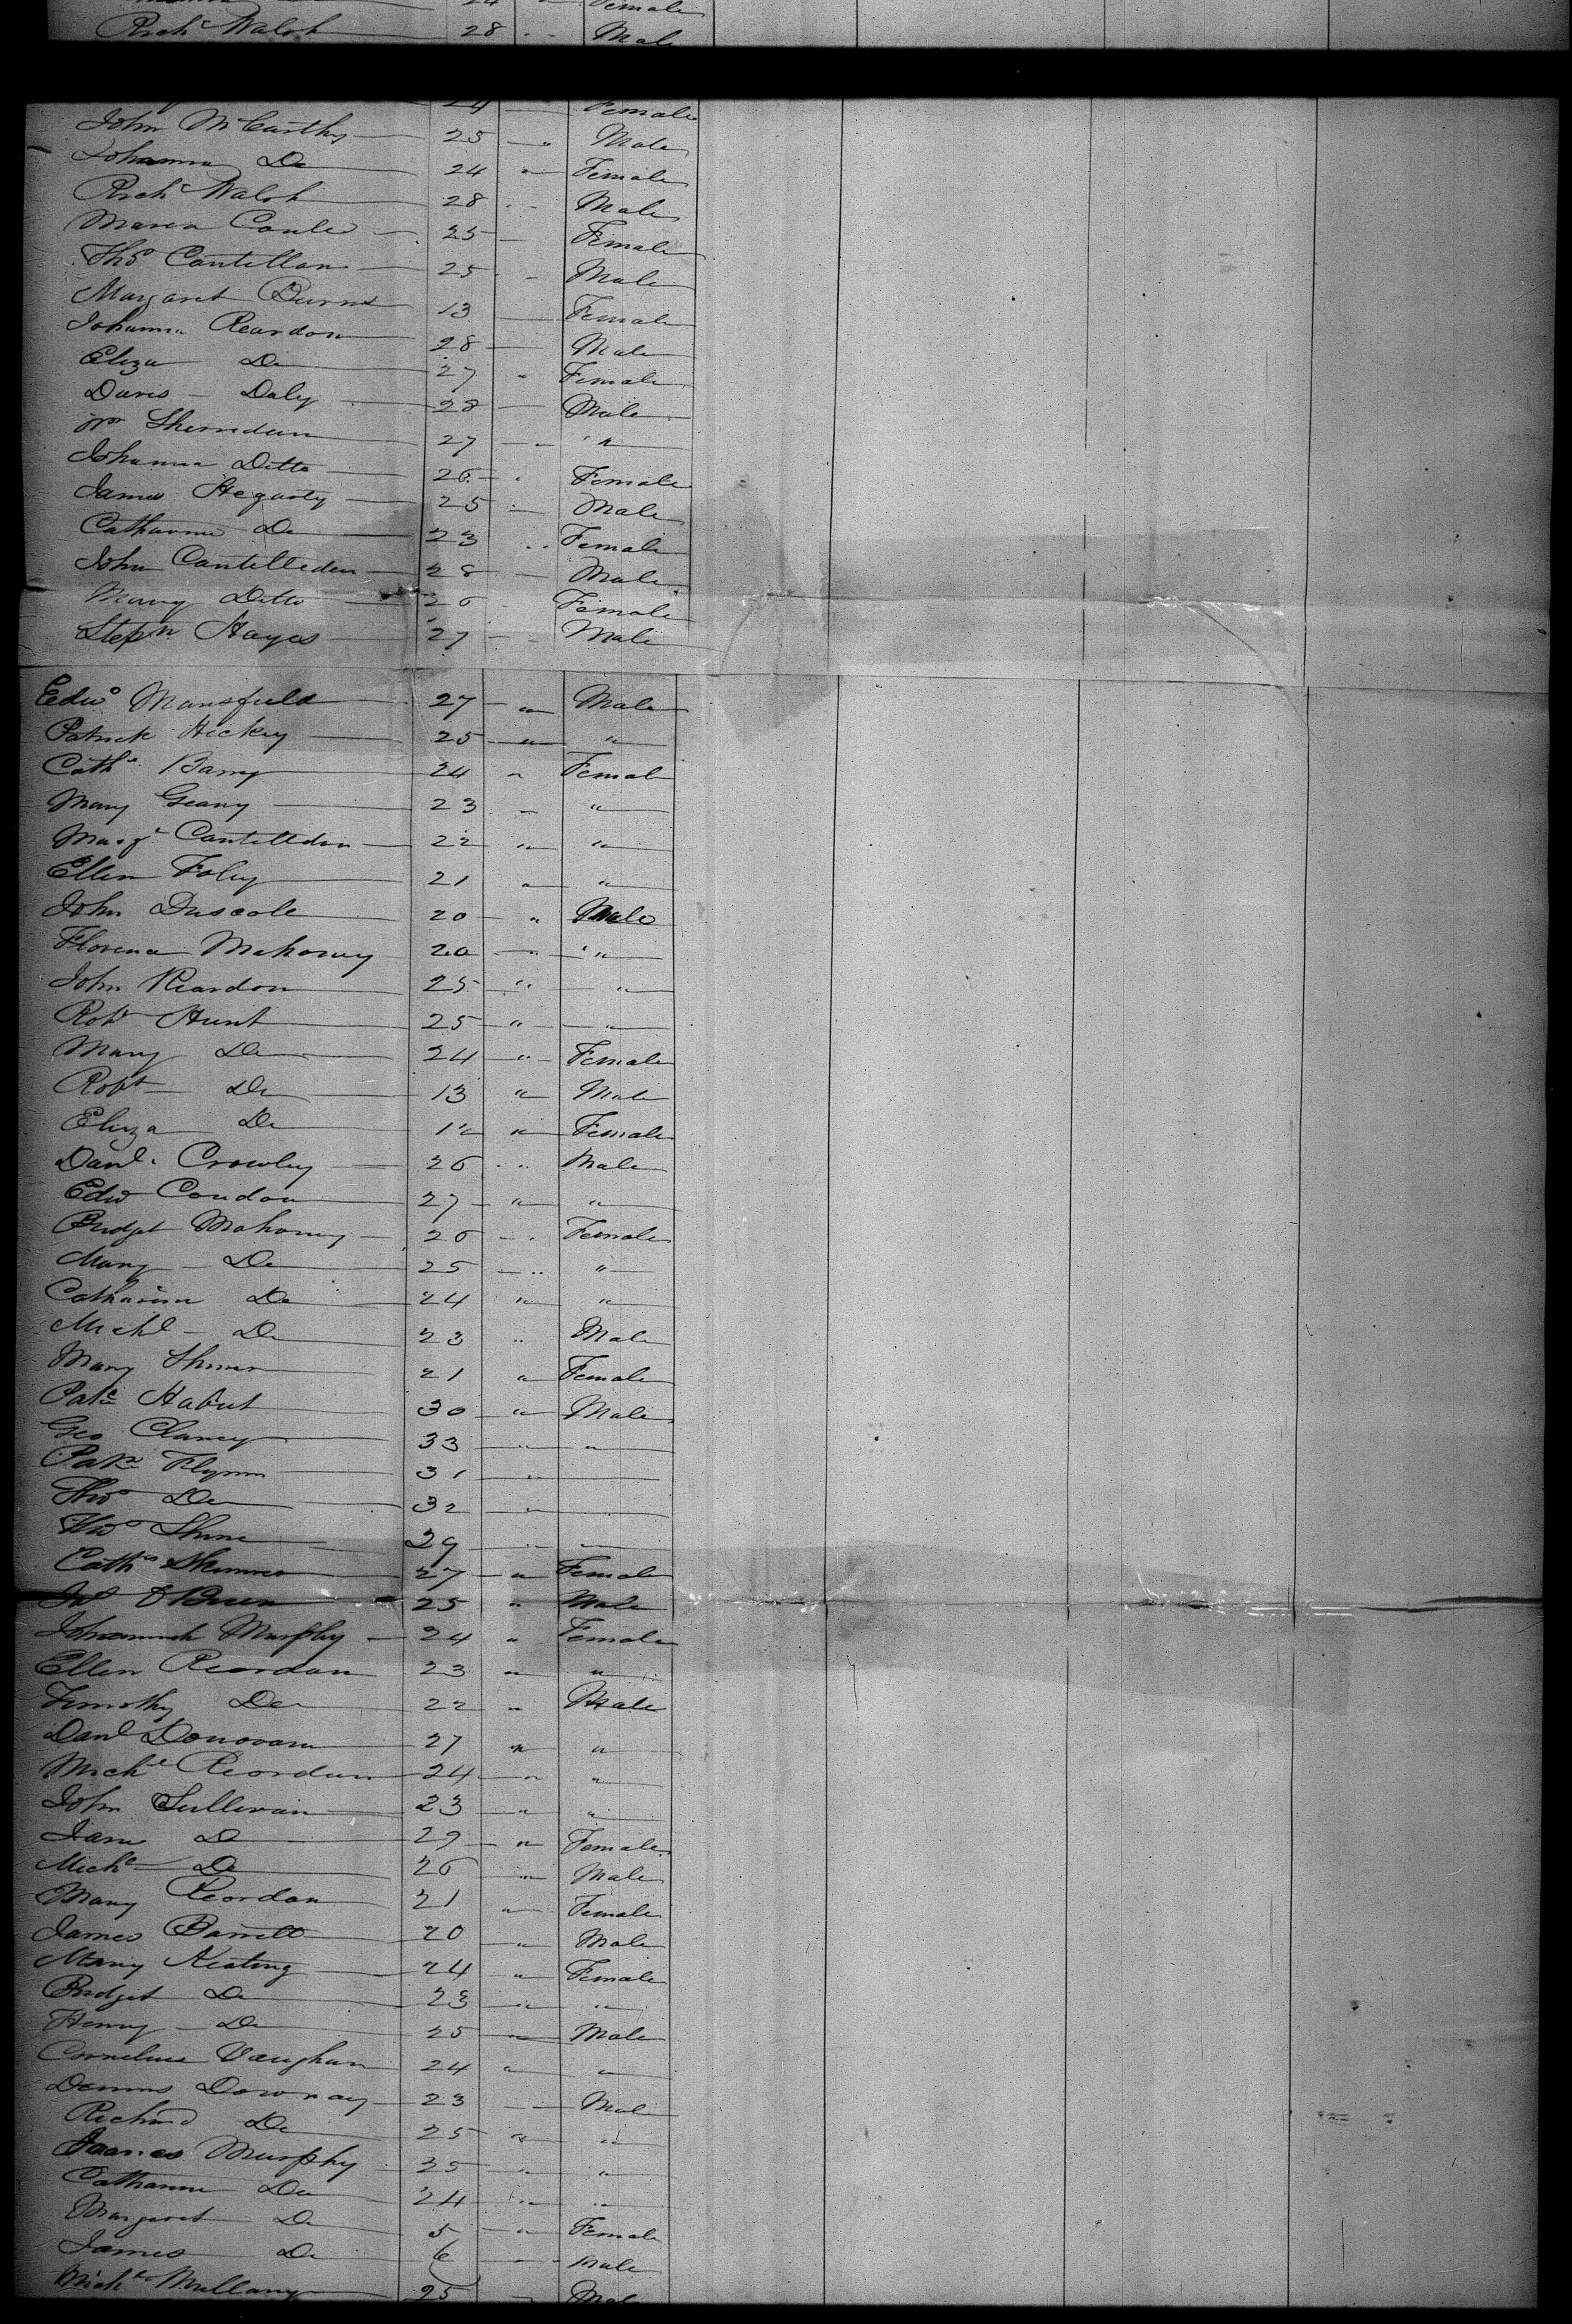 24 Female
Richd Walsh 28 " Male
24 — Female
John McCarthy 25 — " Male
Johanna Do 24 " Female
Richd Walsh 28 " Male
25 — Female
Thos Cantillon 25 " Male
Margaret Burns 13 — Female
Johanna Reardon 28 — Male
Eliza Do 27 " Female
Davis Daly 28 — Male
Wm Sherridan 27 — " "
Johanna Ditto 26 " Female
James Hegarty 25 " Male
Catharine Do 23 " Female
John Cantelleden 28 — Male
Mary Ditto 26 Female
Stepn Hayes 27 — Male
Edwd Mansfield 27 — " Male
Patrick Hickey 25 — " "
Cathe Barry 24 " Female
Mary Geany 23 " "
Margt Cantelldon 22 " "
Ellen Foley 21 " "
John Driscole 20 " Male
Florence Mahoney 20 — " "
John Reardon 25 " "
Robt Hunt 25 " "
Mary Do 24 " Female
Robt Do 13 " Male
Eliza Do 12 " Female
Danl Crowley 26 " Male
Edwd Condon 27 " "
Bridget Mahoney 26 " Female
Mary Do 25 " "
Catharine Do 24 " "
Michl Do 23 " Male
Mary 21 " Female
Patk 30 " Male
Geo Clancy 33 " "
Patk Flynn 31 "
Thos Do 32 "
Thos Shine 29 " "
Cathe 27 " Female
O'Brien 25 " Male
Johannah Murphy 24 " Female
Ellen Reordan 23 " "
Timothy Do 22 " Male
Danl Donovan 27 " "
Michl Reordan 24 " "
John Sullivan 23 " "
Jane Do 29 " Female
Michl Do 26 " Male
Mary Reordan 21 " Female
James Barrett 20 " Male
Mary Keating 24 " Female
Bridget Do 23 " "
Henry Do 25 " Male
Cornelius Vaughan 24 " "
Dennis Downay 23 — Male
Richard Do 25 " "
James Murphy 25 " "
Catharine Do 24 " "
Margaret Do 5 " Female
James Do 6 " Male
Michl Mullany 25 — Male